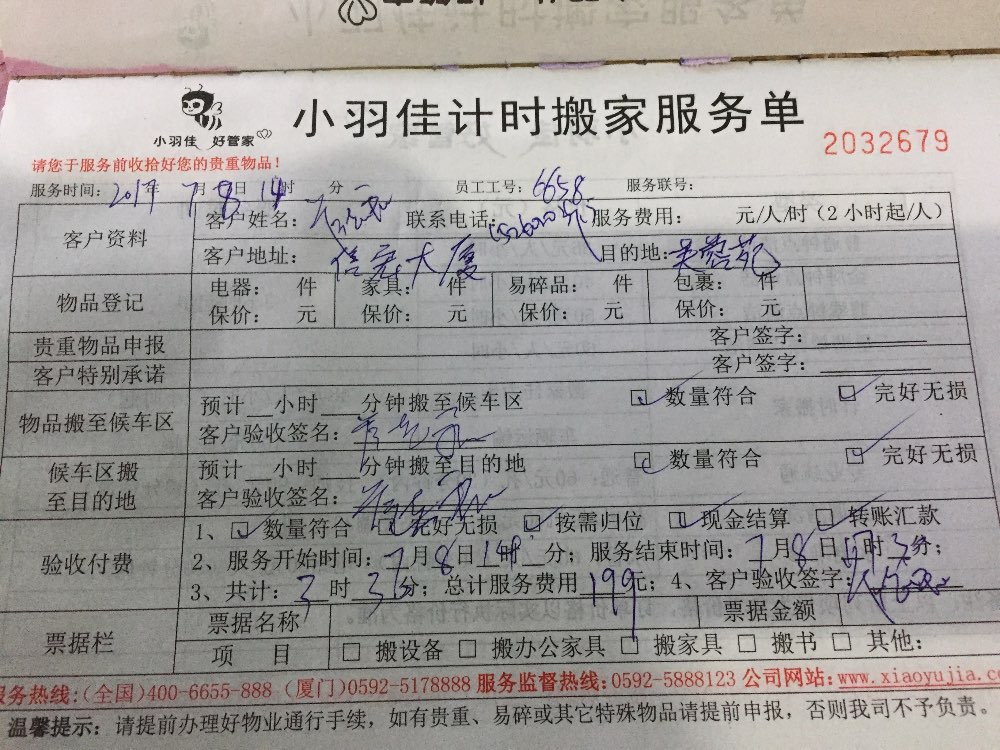 小羽佳计时搬家服务单
小羽佳 好管家
2032679
请您于服务前收拾好您的贵重物品！
服务时间：2017年 7月 8日 14时 分 员工工号：6658 服务联号：
客户资料
客户姓名： 联系电话： 服务费用： 元/人/时（2小时起/人）
客户地址： 信宏大厦 目的地：
物品登记
电器： 件 家具： 件 易碎品： 件 包裹： 件
保价： 元 保价： 元 保价： 元 保价： 元
贵重物品申报 客户签字：
客户特别承诺 客户签字：
物品搬至候车区
预计__小时___分钟搬至候车区 数量符合 完好无损
客户验收签名：
候车区搬至目的地
预计__小时___分钟搬至目的地 数量符合 完好无损
客户验收签名：
验收付费
1、 数量符合 完好无损 按需归位 现金结算 转账汇款
2、服务开始时间：7月8日14时 分；服务结束时间：7月8日 时 分；
3、共计：3时 分；总计服务费用199元；4、客户验收签字：
票据栏
票据名称 票据金额
项 目 □ 搬设备 □ 搬办公家具 □ 搬家具 □ 搬书 □ 其他：
服务热线：(全国)400-6655-888 (厦门)0592-5178888 服务监督热线：0592-5888123 公司网站：www.xiaoyujia.co
温馨提示：请提前办理好物业通行手续，如有贵重、易碎或其它特殊物品请提前申报，否则我司不予负责。